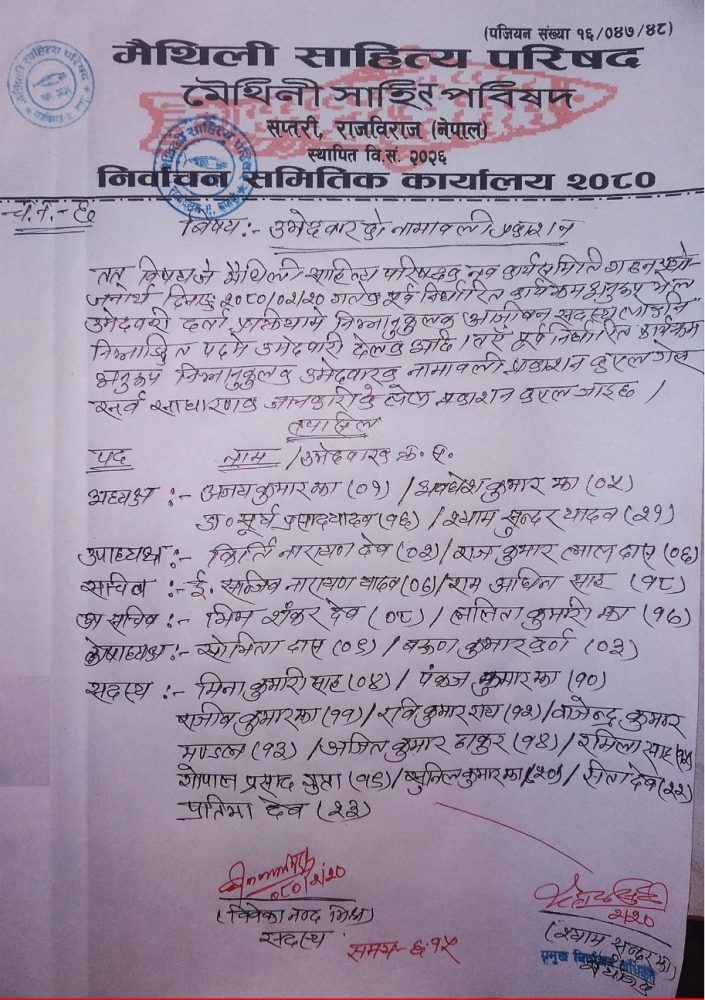 (पंजियन संख्या १६/०४७/४८)
मैथिली साहित्य परिषद
सप्तरी, राजविराज (नेपाल)
स्थापित वि.सं. २०२६
निर्वाचन समितिक कार्यालय २०८०
च.नं.-९०
विषय:- उमेदवारको नामावली प्रकाशन
तत् विषयजे मैथिली साहित्य परिषदक नव कार्यसमिति गठन प्रयो-
जनार्थ दिनाङ्क २०८०/०२/२० गतेक पूर्व निर्धारित कार्यक्रम अनुरूप भेल
उमेदवारी दर्ता प्रक्रियामे निम्नानुकुलक (आजीवन सदस्य)
निम्नाङ्कित पदमे उमेदवारी देलक अछि। पूर्व निर्धारित कार्यक्रम
अनुरूप निम्नानुकुलक उमेदवारक नामावली प्रकाशन कएल गेल
सर्व साधारणक जानकारीके लेल प्रकाशन कएल जाइछ।
तपसिल
पद नाम/उमेदवारक क्र.सं.
अध्यक्ष :- अजय कुमार झा (०१) / अवधेश कुमार झा (०५)
डा॰ सूर्य प्रसाद यादव (१६) / श्याम सुन्दर यादव (२१)
उपाध्यक्ष :- किर्ति नारायण देव (०२) / राज कुमार लाल दास (०६)
सचिव :- ई. सन्जिव नारायण यादव (०७) / राम अधिन साह (१८)
सचिव :- भिम शंकर देव (०८) / ललिता कुमारी झा (१७)
कोषाध्यक्ष :- सोभिता दास (०९) / बरुण कुमार कर्ण (०३)
सदस्य :- मिना कुमारी साह (०४) / पंकज कुमार झा (१०)
राजीव कुमार झा (११) / रवि कुमार (१२) / राजेन्द्र कुमार
मण्डल (१३) / अजित कुमार ठाकुर (१४) / रमिला साह (१५)
गोपाल प्रसाद गुप्ता (१९) / सुनिल कुमार झा (२०) / सिता देव (२२)
प्रतिभा देव (२३)
०८०/२/२०
(विवेकानन्द मिश्र)
सदस्य
समय- ६:१५
२/२०
(श्याम सुन्दर झा)
प्रमुख निर्वाचन अधिकृत